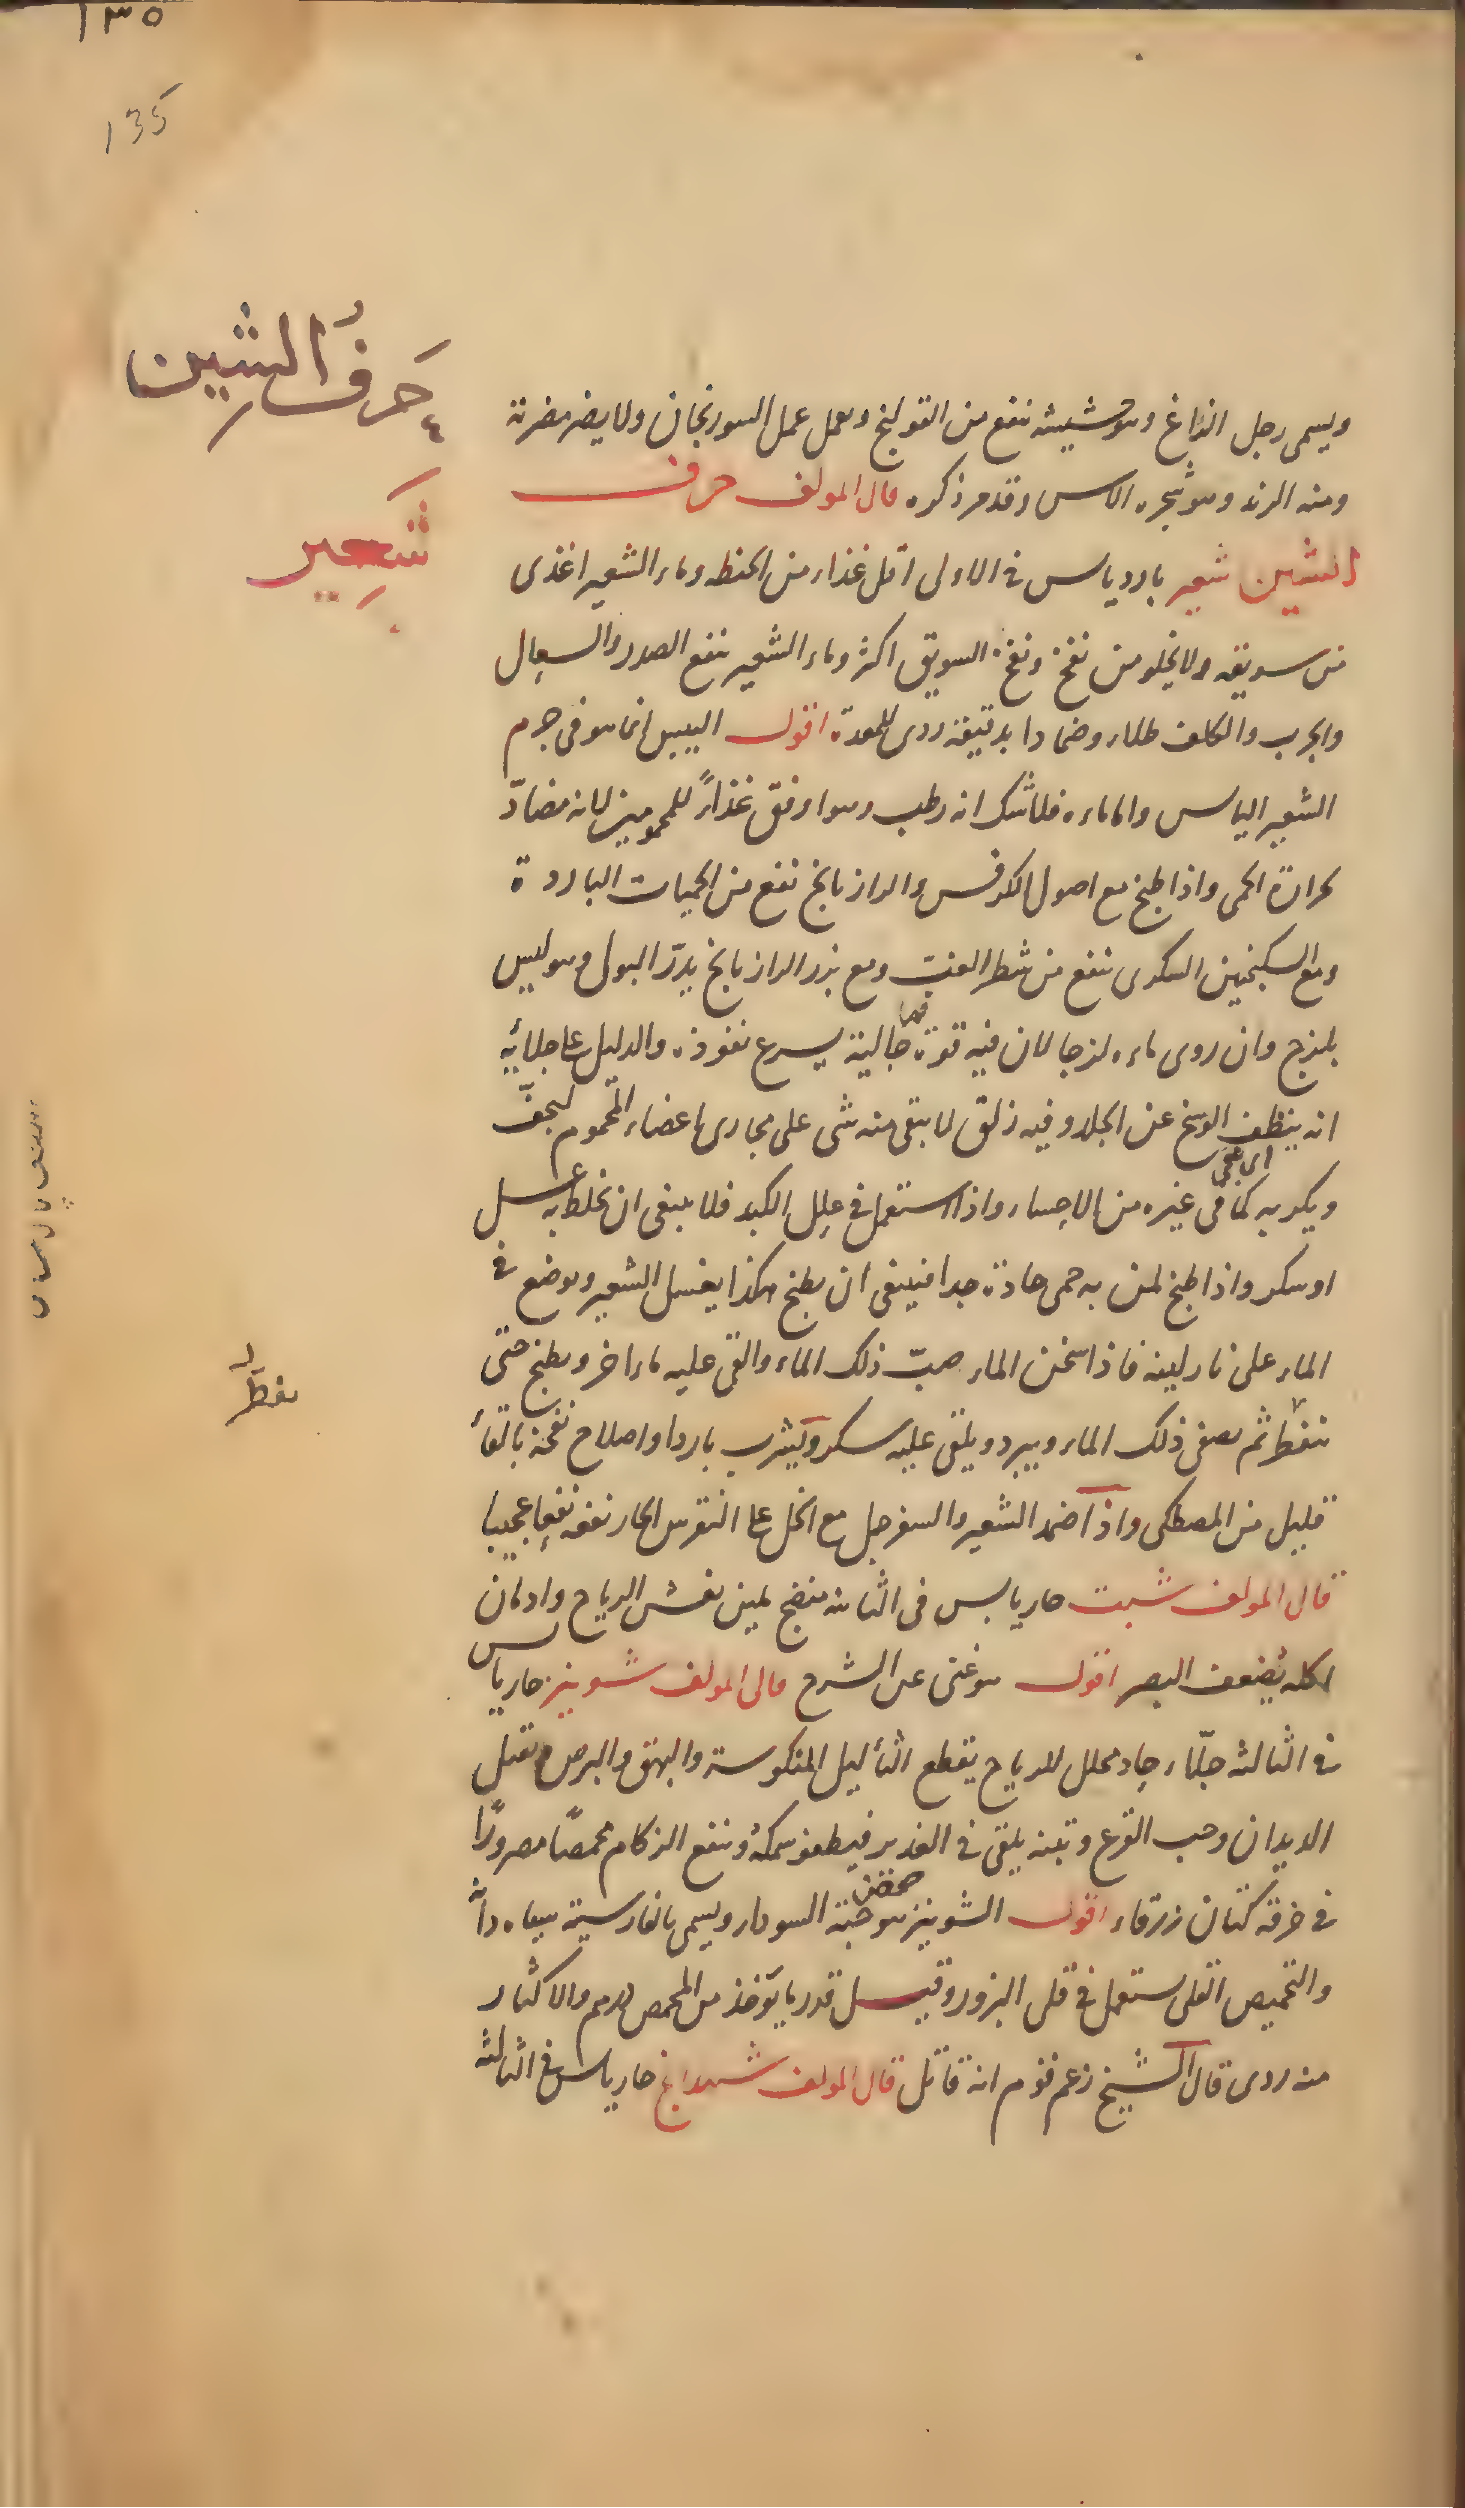 ١٣٥
135
حَرفُ الشين
شَعِير
ويسمى رجل الزاغ وهو حشيشة تنفع من القولنج وتعمل عمل السورنجان ولا يضر مضرته
ومنه الرند وهو شجرة الاس وقد مر ذكره قال المولف حرف
الشين شعير بارد يابس فى الاولى اقل غذاء من الحنطه وماء الشعير اغذى
من سويقه ولا يخلو من نفخ ونفخ السويق اكثر وماء الشعير ينفع الصدر والسعال
والجرب والكلف طلاء وضمادا بدقيقه ردى للمعدة اقول اليبس انما هو فى جرم
الشعير اليابس واما ماءه فلا شك انه رطب وهو اوفق غذاءً للمحمومين لانه مضادّ
لحرارة الحمى واذا طبخ مع اصول الكرفس والرازيانج نفع من الحميات الباردة
ومع السكنجبين السكرى ينفع من شطر الغب ومع بزر الرازيانج يدرّ البول وهو ليس
بلزج وان روى ماءه لزجا لان فيه قوة جالية يسرع نفوذه والدليل على جلائه
انه ينظف الوسخ عن الجلد وفيه زلق لا يبقى منه شى على مجارى اعضاء المحموم لیجفّ
ويكربه كما فى غيره من الاحساء واذا استعمل فى علل الكبد فلا ينبغى ان يخلط به عسل
او سكر واذا طبخ لمن به حمى حادة جدا فينبغى ان يطبخ هكذا يغسل الشعير ويوضع فى
الماء على نار لينه فاذا سخن الماء صبّ ذلك الماء والقى عليه ماء اخر ويطبخ حتى
يتفطر ثم يصفى ذلك الماء ويبرد ويلقى عليه سكر ويشرب باردا واصلاح نفخه بالقاء
قليل من المصطكى واذا ضمد الشعير والسفرجل مع الخل على النقرس الحار نفعه نفعا عجيبا
قال المولف شبت حار يابس فى الثانيه منضج ملين يفش الرياح وادمان
اكله يضعف البصر اقول هو غنى عن الشرح قال المولف شونيز حار يابس
فى الثالثه جلّاء حاد محلل للرياح يقطع الثأليل المنكوسة والبهق والبرص ويقتل
الديدان وحب القرع وتبنه يلقى فى الغدير فيطفو سمكهُ وينفع الزكام محمصًا مصرورًا
فى خرقة كتان زرقاء اقول الشونيز هو حبة السوداء ويسمى بالفارسية سياه دانه
والتحميص القلى يستعمل فى قلى البزور وقيل قدر ما يؤخذ من المحمص درهم والاكثار
منه ردى قال الشيخ زعم قوم انه قاتل قال المولف شهدانج حار يابس فى الثالثه